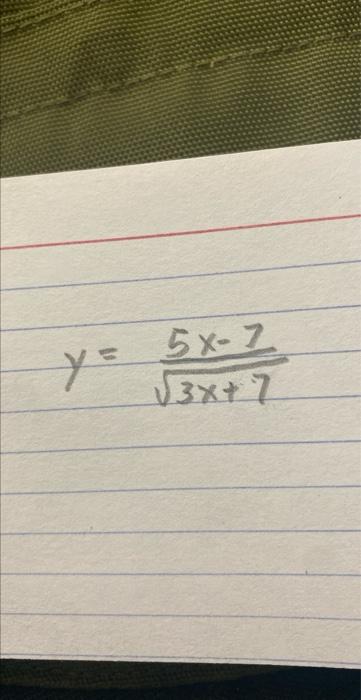 y = (5x-7)/(√(3x+7))